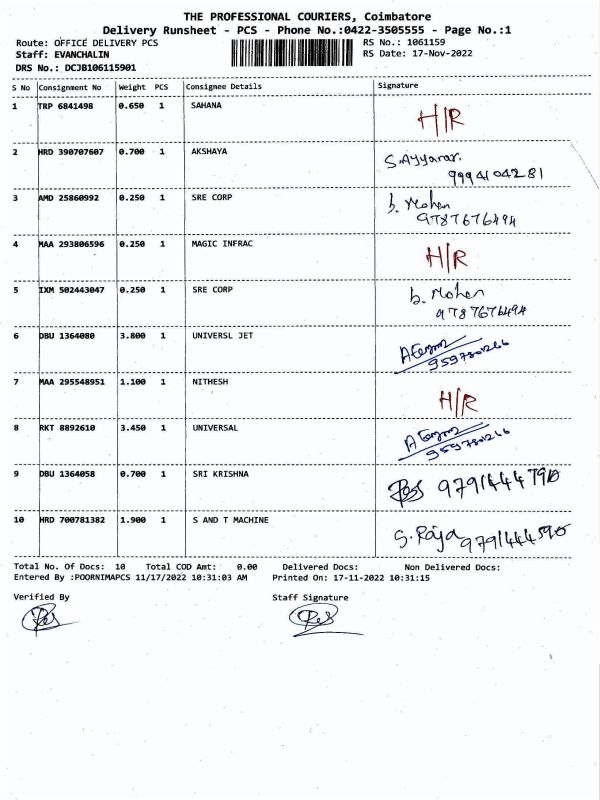 THE PROFESSIONAL COURIERS, Coimbatore
Delivery Runsheet - PCS - Phone No.:0422-3505555 - Page No.:1
Route: OFFICE DELIVERY PCS RS No.: 1061159
Staff: EVANCHALIN RS Date: 17-Nov-2022
DRS No.: DCJB106115901
S No Consignment No Weight PCS Consignee Details Signature
1 TRP 6841498 0.650 1 SAHANA H/R
2 HRD 390707607 0.700 1 AKSHAYA S.Ayyanar.
9994104281
3 AMD 25860992 0.250 1 SRE CORP b. Mohan
9787676494
4 MAA 293806596 0.250 1 MAGIC INFRAC H/R
5 IXM 502443047 0.250 1 SRE CORP b. Mohan
9787676494
6 DBU 1364080 3.800 1 UNIVERSL JET
7 MAA 295548951 1.100 1 NITHESH H/R
8 RKT 8892610 3.450 1 UNIVERSAL
9 DBU 1364058 0.700 1 SRI KRISHNA
10 HRD 700781382 1.900 1 S AND T MACHINE S. Raja
Total No. Of Docs: 10 Total COD Amt: 0.00 Delivered Docs: Non Delivered Docs:
Entered By :POORNIMAPCS 11/17/2022 10:31:03 AM Printed On: 17-11-2022 10:31:15
Verified By Staff Signature